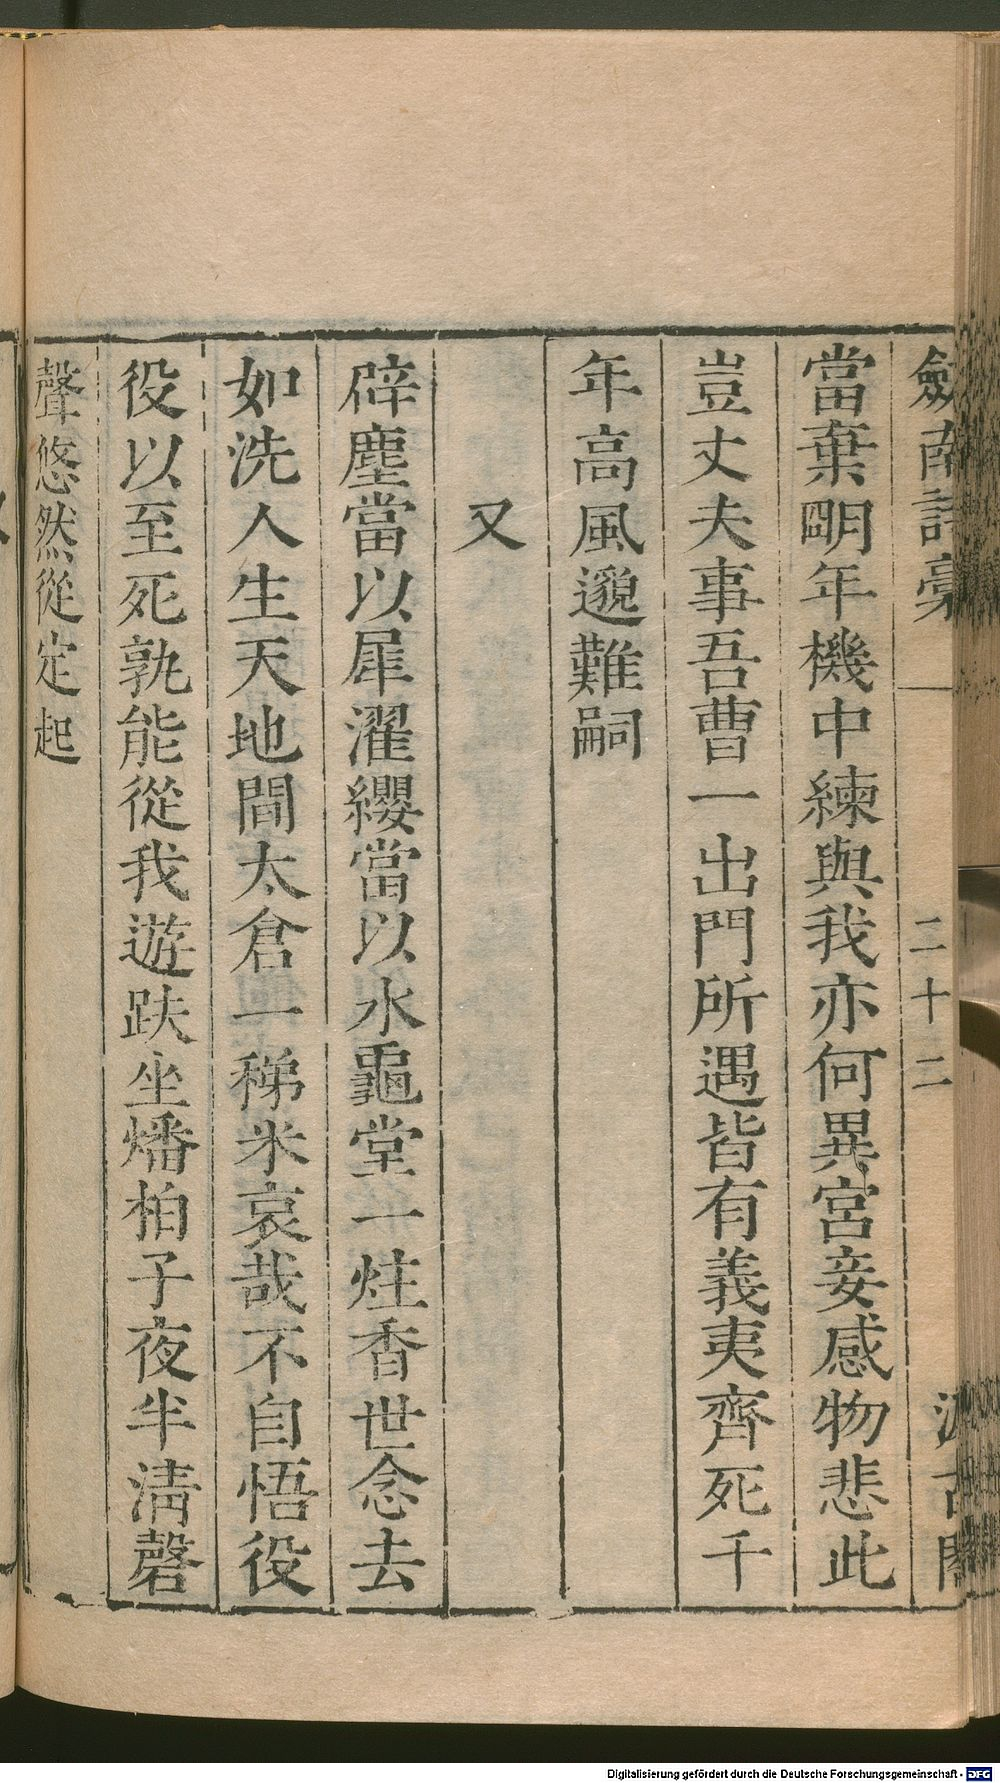 劒南詩稾 二十二 汲古閣
當棄明年機中練與我亦何異宮妾感物悲此
豈丈夫事吾曹一出門所遇皆有義夷齊死千
年高風邈難嗣
又
辟塵當以犀濯纓當以水龜堂一炷香世念去
如洗人生天地間太倉一稊米哀哉不自悟役
役以至死孰能從我遊趺坐燔柏子夜半淸磬
聲悠然從定起
Digitalisierung gefördert durch die Deutsche Forschungsgemeinschaft - DFG